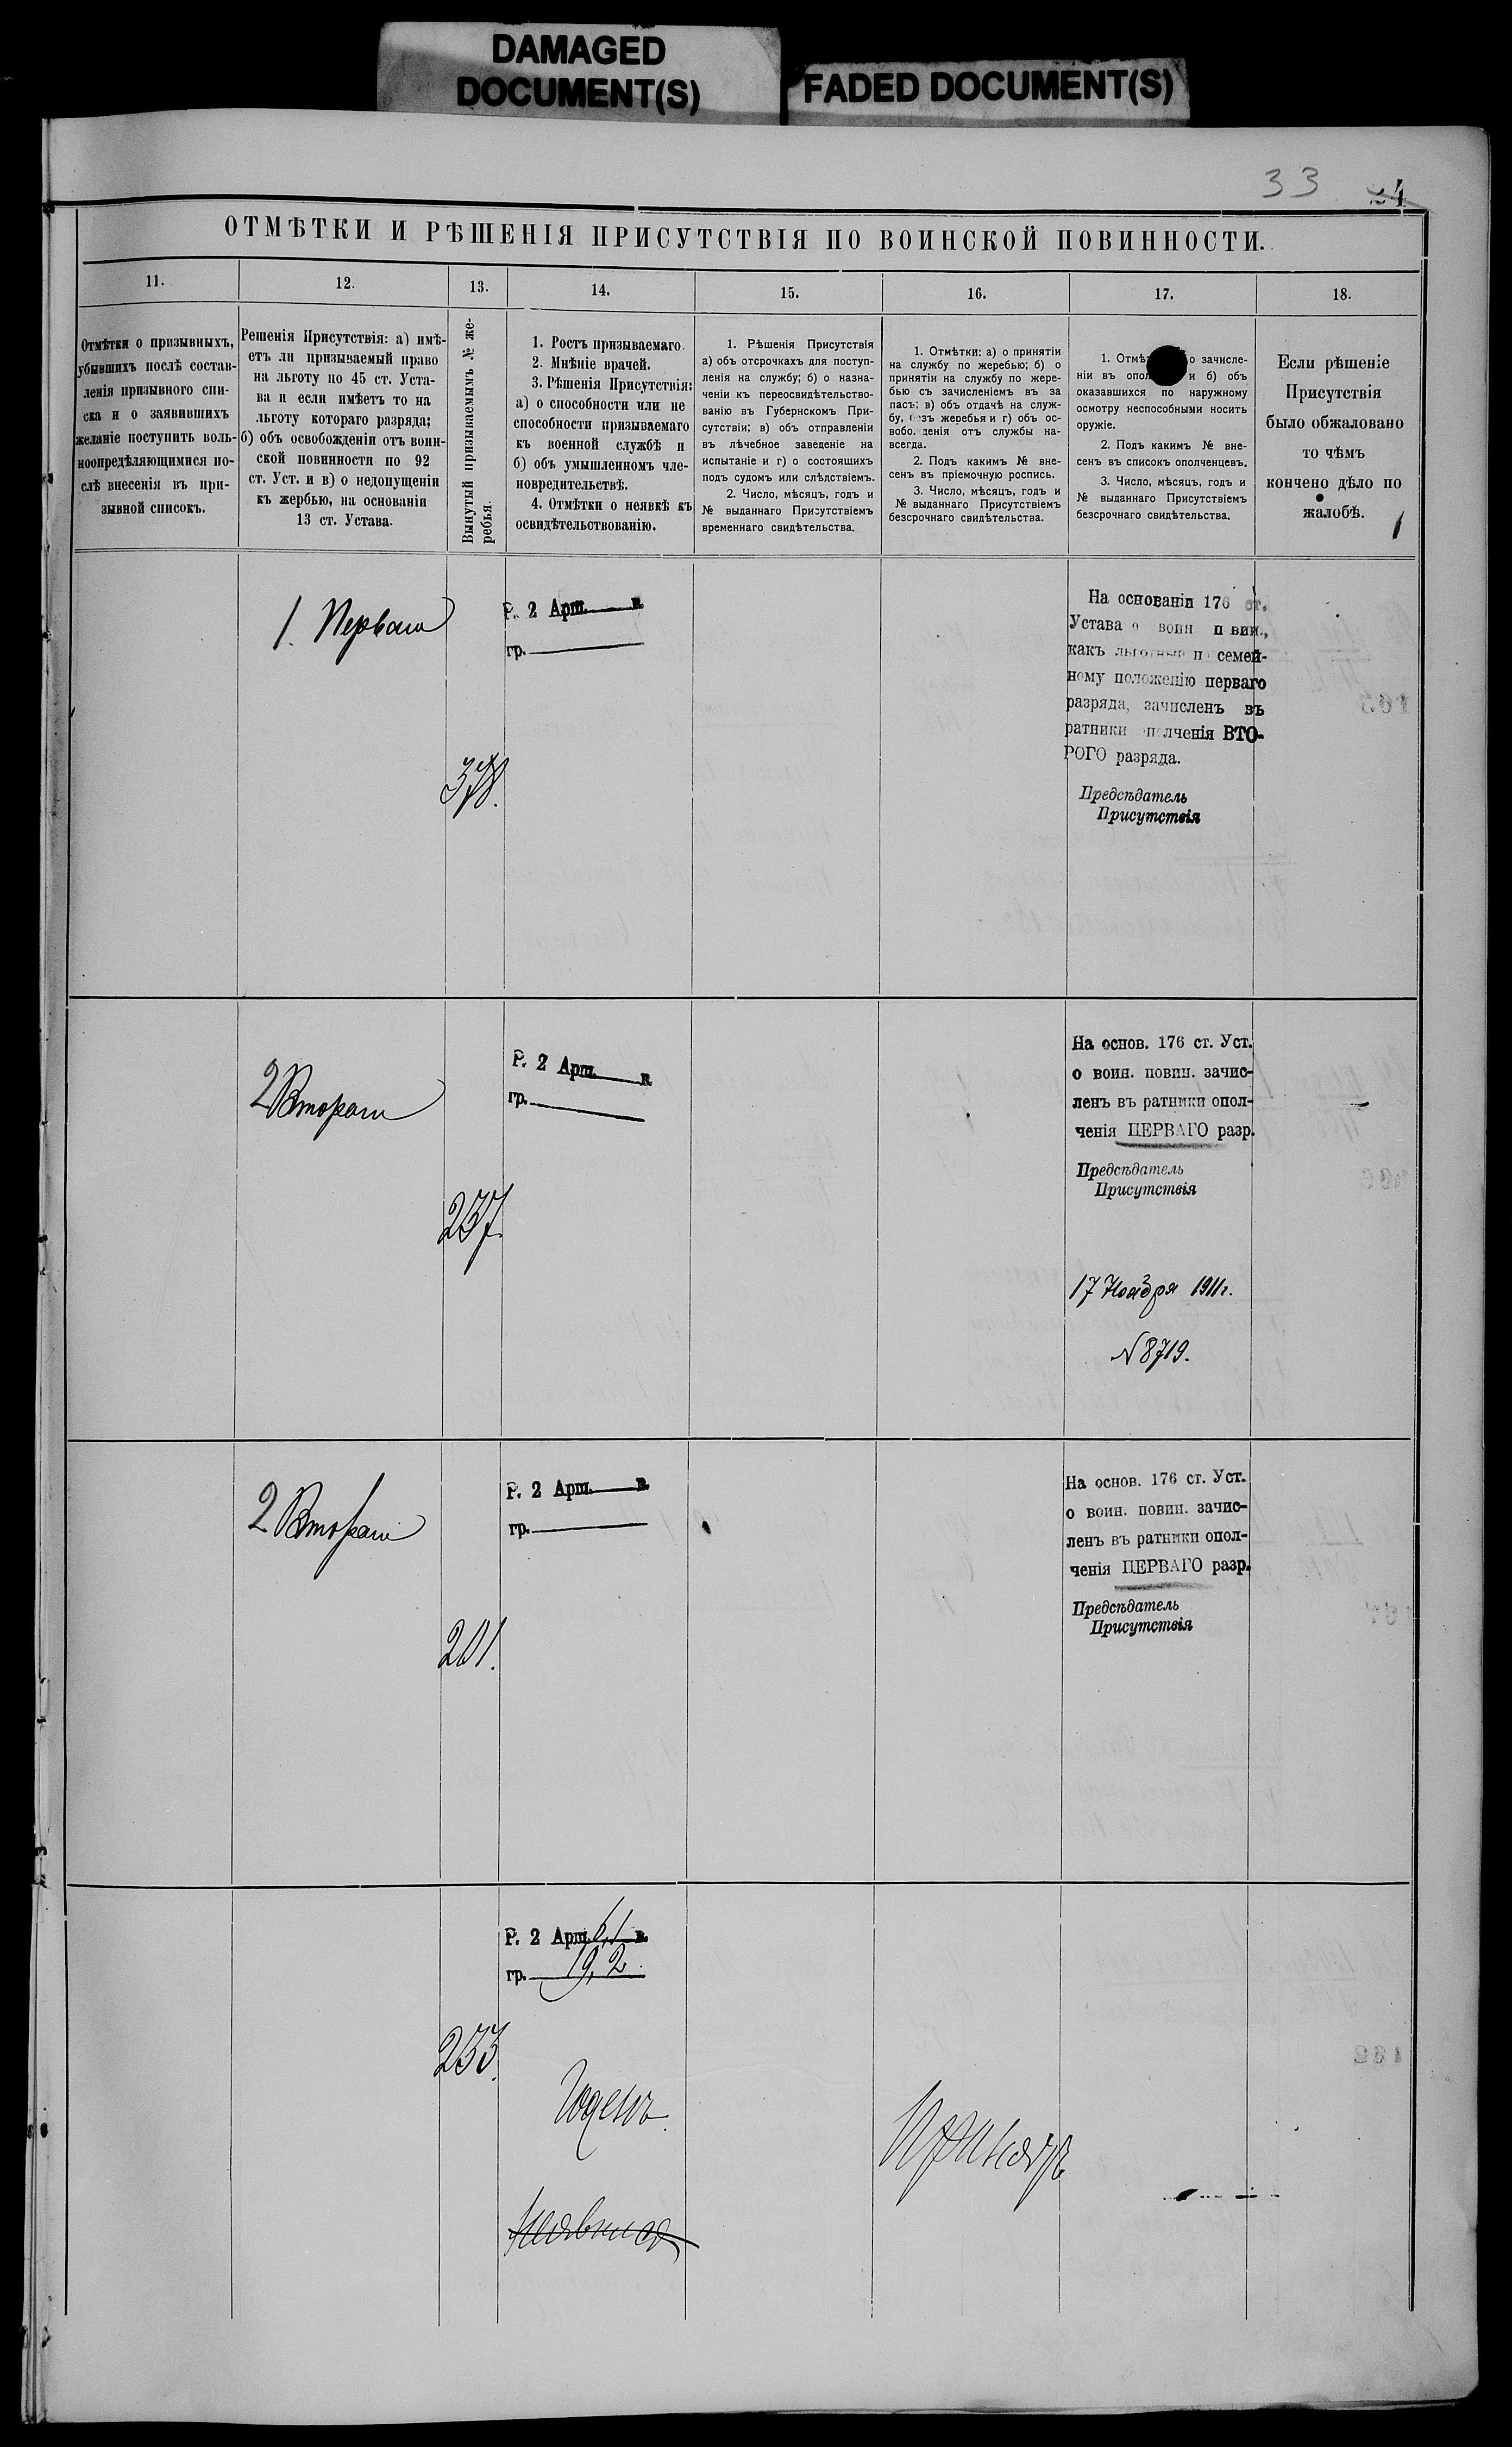 DAMAGED
DOCUMENT(S)
FADED DOCUMENT(S)
33
ОТМѢТКИ И РѢШЕНІЯ ПРИСУТСТВІЯ ПО ВОИНСКОЙ ПОВИННОСТИ.
11.
12.
13.
14.
15.
16.
17.
18.
Отмѣтки о призывныхъ,
убывшихъ послѣ состав-
ленія призывного спи-
ска и о заявившихъ
желаніе поступить воль-
ноопредѣляющимися по-
слѣ внесенія въ при-
зывной списокъ.
Решенія Присутствія: а) имѣ-
етъ ли призываемый право
на льготу по 45 ст. Уста-
ва и если имѣетъ то на
льготу котораго разряда;
б) объ освобожденіи отъ воин-
ской повинности по 92
ст. Уст. и в) о недопущеніи
къ жербью, на основаніи
13 ст. Устава.
Вынутый призываемымъ № же-
ребья.
1. Ростъ призываемаго.
2. Мнѣніе врачей.
3. Рѣшенія Присутствія:
а) о способности или не
способности призываемаго
къ военной службѣ и
б) объ умышленномъ чле-
новредительствѣ.
4. Отмѣтки о неявкѣ къ
освидѣтельствованію.
1. Рѣшенія Присутствія
а) объ отсрочкахъ для поступ-
ленія на службу; б) о назна-
ченіи къ переосвидѣтельство-
ванію въ Губернскомъ При-
сутствіи; в) объ отправленіи
въ лѣчебное заведеніе на
испытаніе и г) о состоящихъ
подъ судомъ или слѣдствіемъ.
2. Число, мѣсяцъ, годъ и
№ выданнаго Присутствіемъ
временнаго свидѣтельства.
1. Отмѣтки: а) о принятіи
на службу по жеребью; б) о
принятіи на службу по жере-
бью съ зачисленіемъ въ за
пасъ; в) объ отдачѣ на служ-
бу, безъ жеребья и г) объ ос-
вобо. денія отъ службы на-
всегда.
2. Подъ какимъ № вне-
сенъ въ пріемочную роспись.
3. Число, мѣсяцъ, годъ и
№ выданнаго Присутствіемъ
безсрочнаго свидѣтельства.
1. Отмѣ о зачисле-
ніи въ опол и б) объ
оказавшихся по наружному
осмотру неспособными носить
оружіе.
2. Подъ какимъ № вне-
сенъ въ списокъ ополченцевъ.
3. Число, мѣсяцъ, годъ и
№ выданнаго Присутствіемъ
безсрочнаго свидѣтельства.
Если рѣшеніе
Присутствія
было обжаловано
то чѣмъ
кончено дѣло по
жалобѣ.
1. Перваго
378.
Р. 2 Арш. в.
гр.
На основаніи 176 ст.
Устава о воин п вин.,
какъ льготный п семей-
ному положенію перваго
разряда, зачисленъ въ
ратники полченія ВТО-
РОГО разряда.
Предсѣдатель
Присутствія
2 Второго
237.
Р. 2 Арш. в.
гр.
На основ. 176 ст. Уст.
о воин. повин. зачис-
ленъ въ ратники опол-
ченія ПЕРВАГО разр.
Предсѣдатель
Присутствія
17 Ноября 1911г.
N 8719.
2 Второго
201.
Р. 2 Арш. в.
гр.
На основ. 176 ст. Уст.
о воин. повин. зачис-
ленъ въ ратники опол-
ченія ПЕРВАГО разр.
Предсѣдатель
Присутствія
233.
Р. 2 Арш. 6,1 в.
гр. 19,2
Годенъ.
Неявился
Принятъ